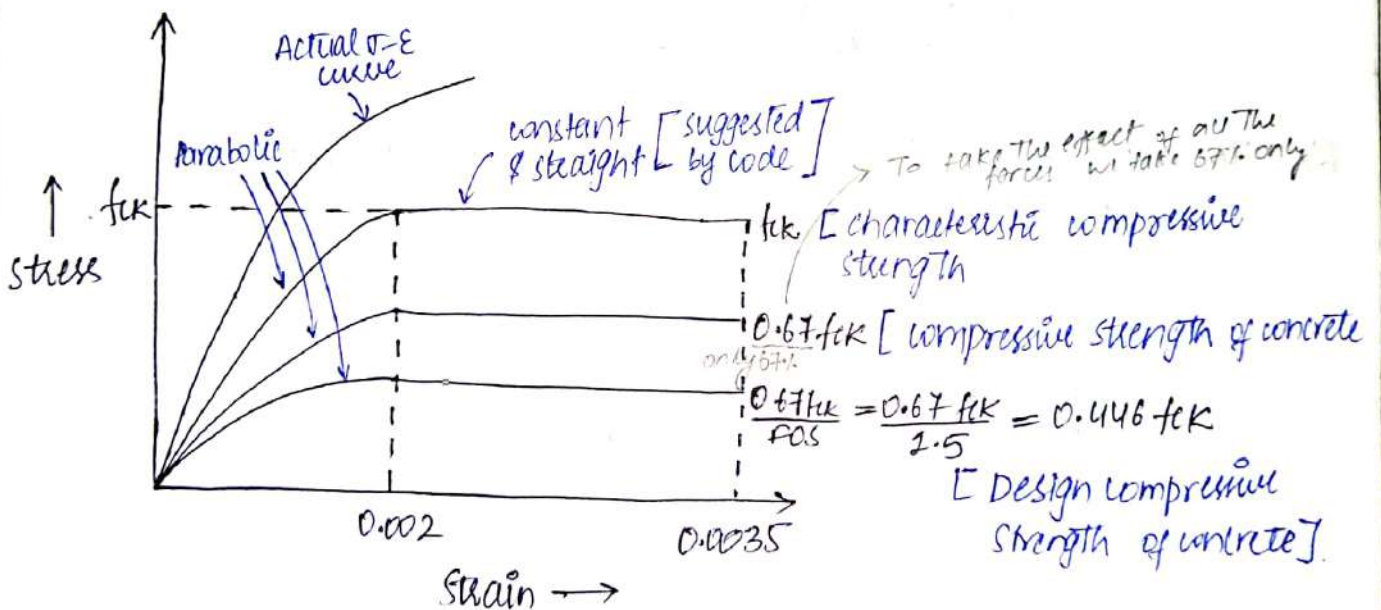 Actual σ-ε
curve
Parabolic
constant
& straight [suggested
by code]
To take the effect of all the
forces we take 67% only
fck
stress
fck [characteristic compressive
strength
0.67 fck [compressive strength of concrete
only 67%
0.67fck/FOS = 0.67 fck/1.5 = 0.446 fck
[Design compressive
strength of concrete]
0.002
0.0035
strain →